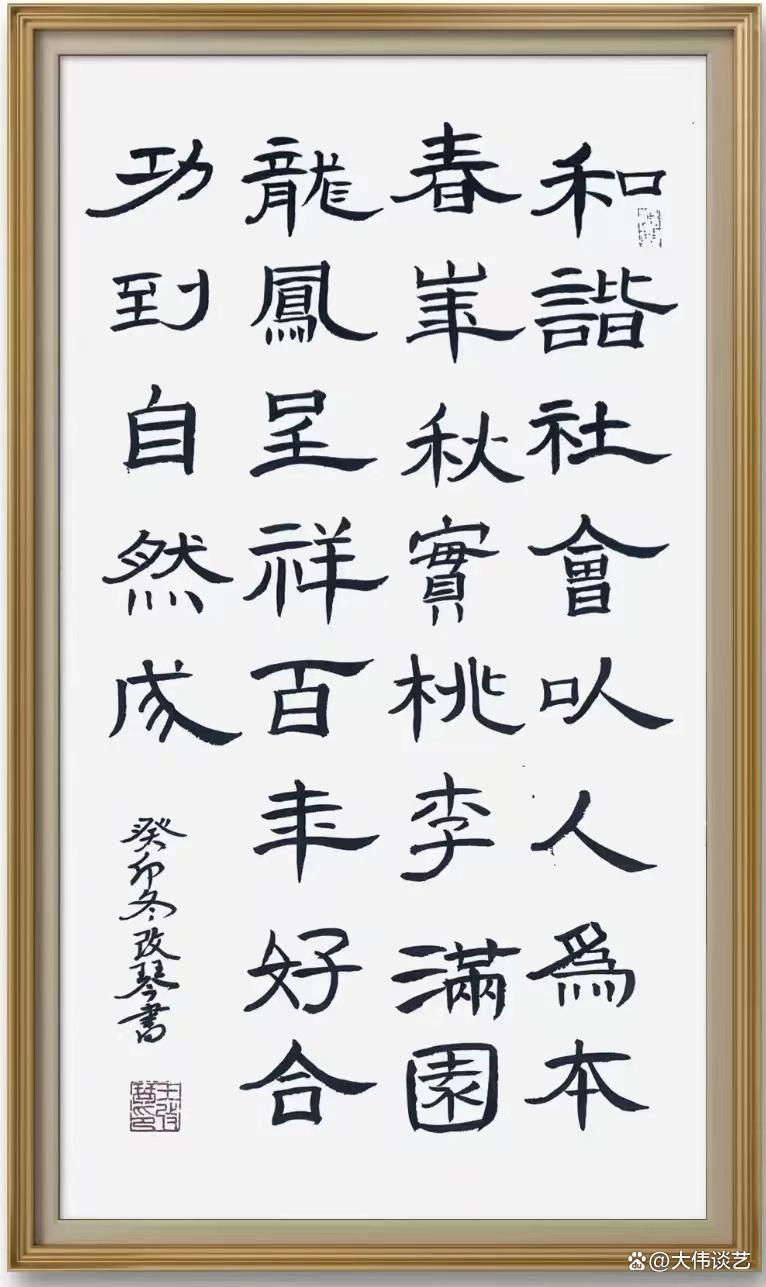 和諧社會以人為本
春華秋實桃李滿園
龍鳳呈祥百年好合
功到自然成
癸卯冬改琴書
王改琴印
@大伟谈艺